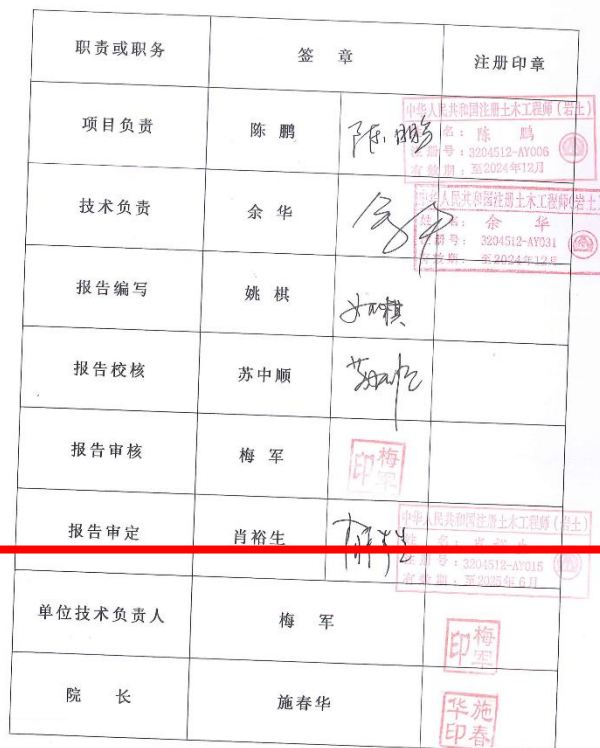 职责或职务 签 章 注册印章
项目负责 陈 鹏 陈鹏
中华人民共和国注册土木工程师(岩土)
姓 名: 陈 鹏
注册号: 3204512-AY006
有效期: 至2024年12月
技术负责 余 华
中华人民共和国注册土木工程师(岩土)
姓 名: 余 华
注册号: 3204512-AY031
有效期: 至2024年12月
报告编写 姚 棋 姚棋
报告校核 苏中顺
报告审核 梅 军 梅军印
报告审定 肖裕生
中华人民共和国注册土木工程师(岩土)
注册号: 3204512-AY015
有效期: 至2025年6月
单位技术负责人 梅 军 梅军印
院 长 施春华 施春华印